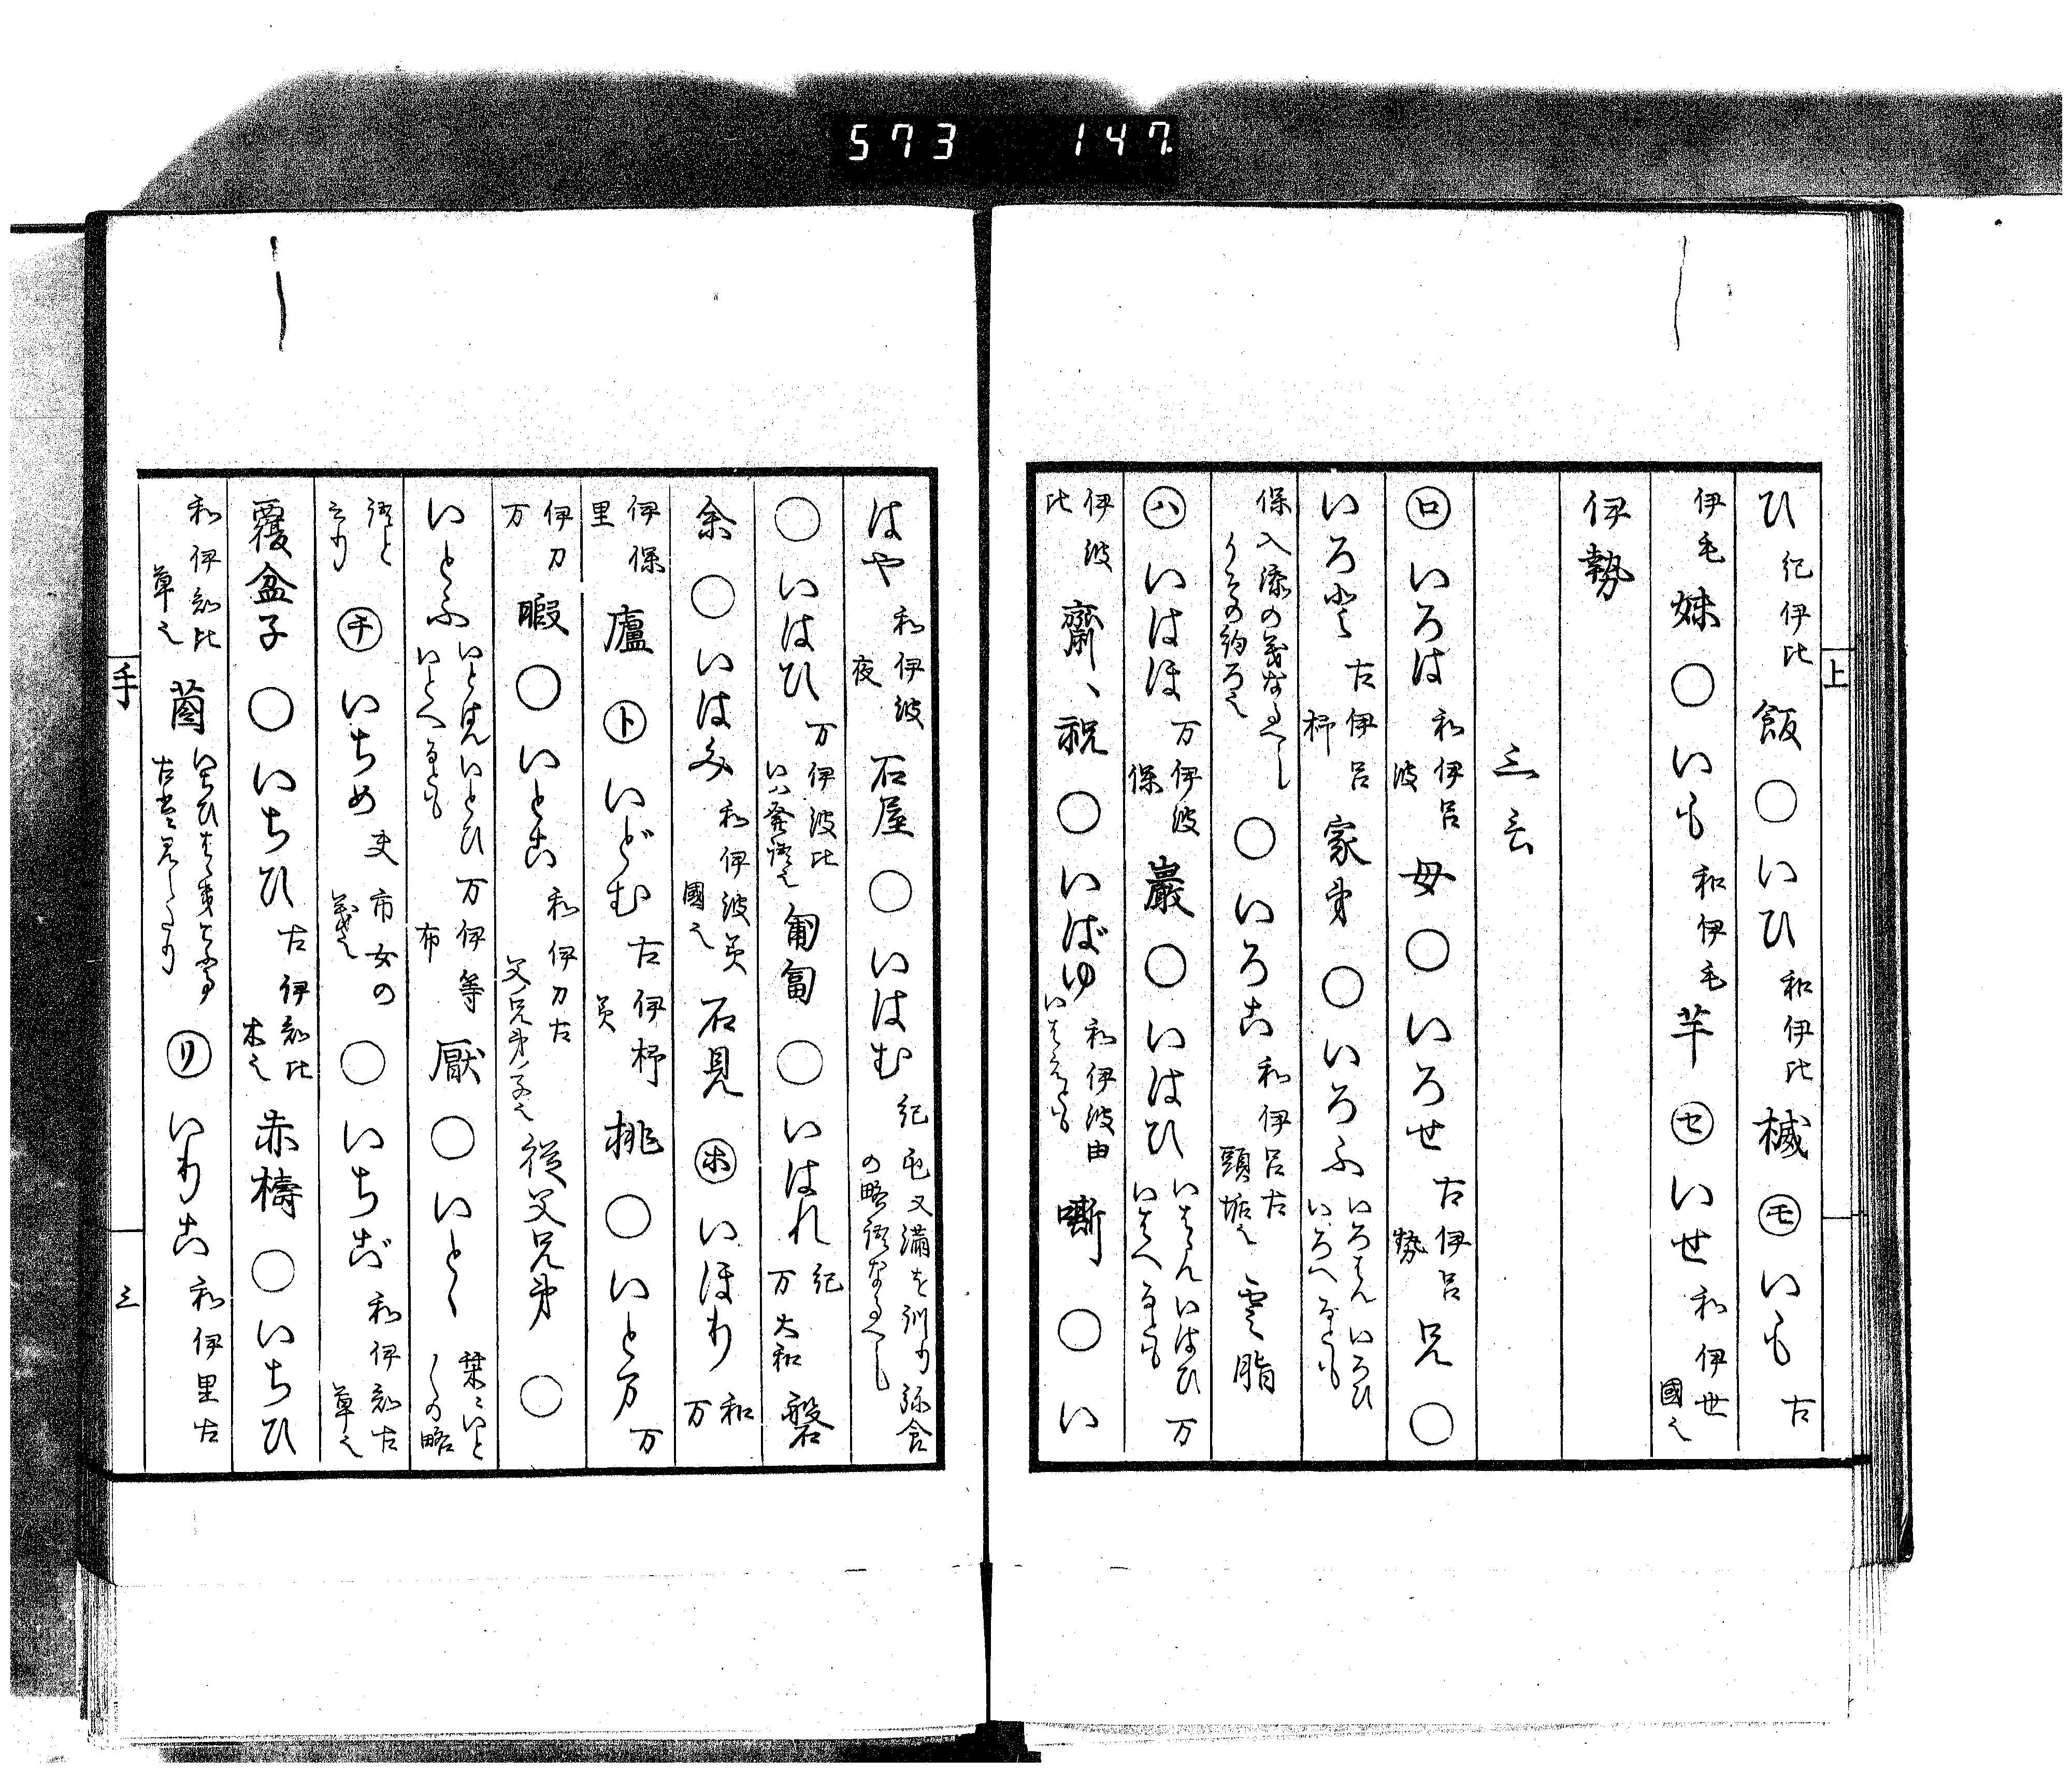 573 147
上
ひ 紀伊比 飯 ○いひ 和伊比 槭 ㋲いも 古
伊毛 妹 ○いも 和伊毛 芋 ㋝いせ 和伊世 國之
伊勢
三言
㋺いろは 和伊呂波 母 ○いろせ 古伊呂勢 兄 ○
いろど 古伊呂杼 家弟 ○いろふ いろはんいろひいろへなども
保 入添の義なるべし りその約ろ也 ○いろこ 和伊呂古 頭垢之 雲脂
㋩いはほ 万伊波保 巖 ○いはひ いはゝんいはひいはへなども 万
伊波比 齋、祝 ○いばゆ 和伊波由 いばえとも 嘶 ○い
はや 和伊波夜 石屋 ○いはむ 紀 屯又滿を訓り弥含の略語なるべし
○いはひ 万伊波比 いハ發語之 匍匐 ○いはれ 紀万大和 磐
余 ○いはみ 和伊波美 國之 石見 ㋭いほり 和万
伊保里 廬 ㋣いどむ 古伊杼美 挑 ○いとま 万
伊刀万 暇 ○いとこ 和伊刀古 父兄弟ノ子之 従父兄弟 ○
いとふ いとはんいとひいとへなども 万伊等布 厭 ○いとゞ 栞ニいとくの略
語と云り ㋠いちめ 吏 市女の義之 ○いちご 和伊知古 草之
覆盆子 ○いちひ 古伊知比 木之 赤檮 ○いちひ
和伊知比 草之 茵 ㋷いりこ 和伊里古
手 三